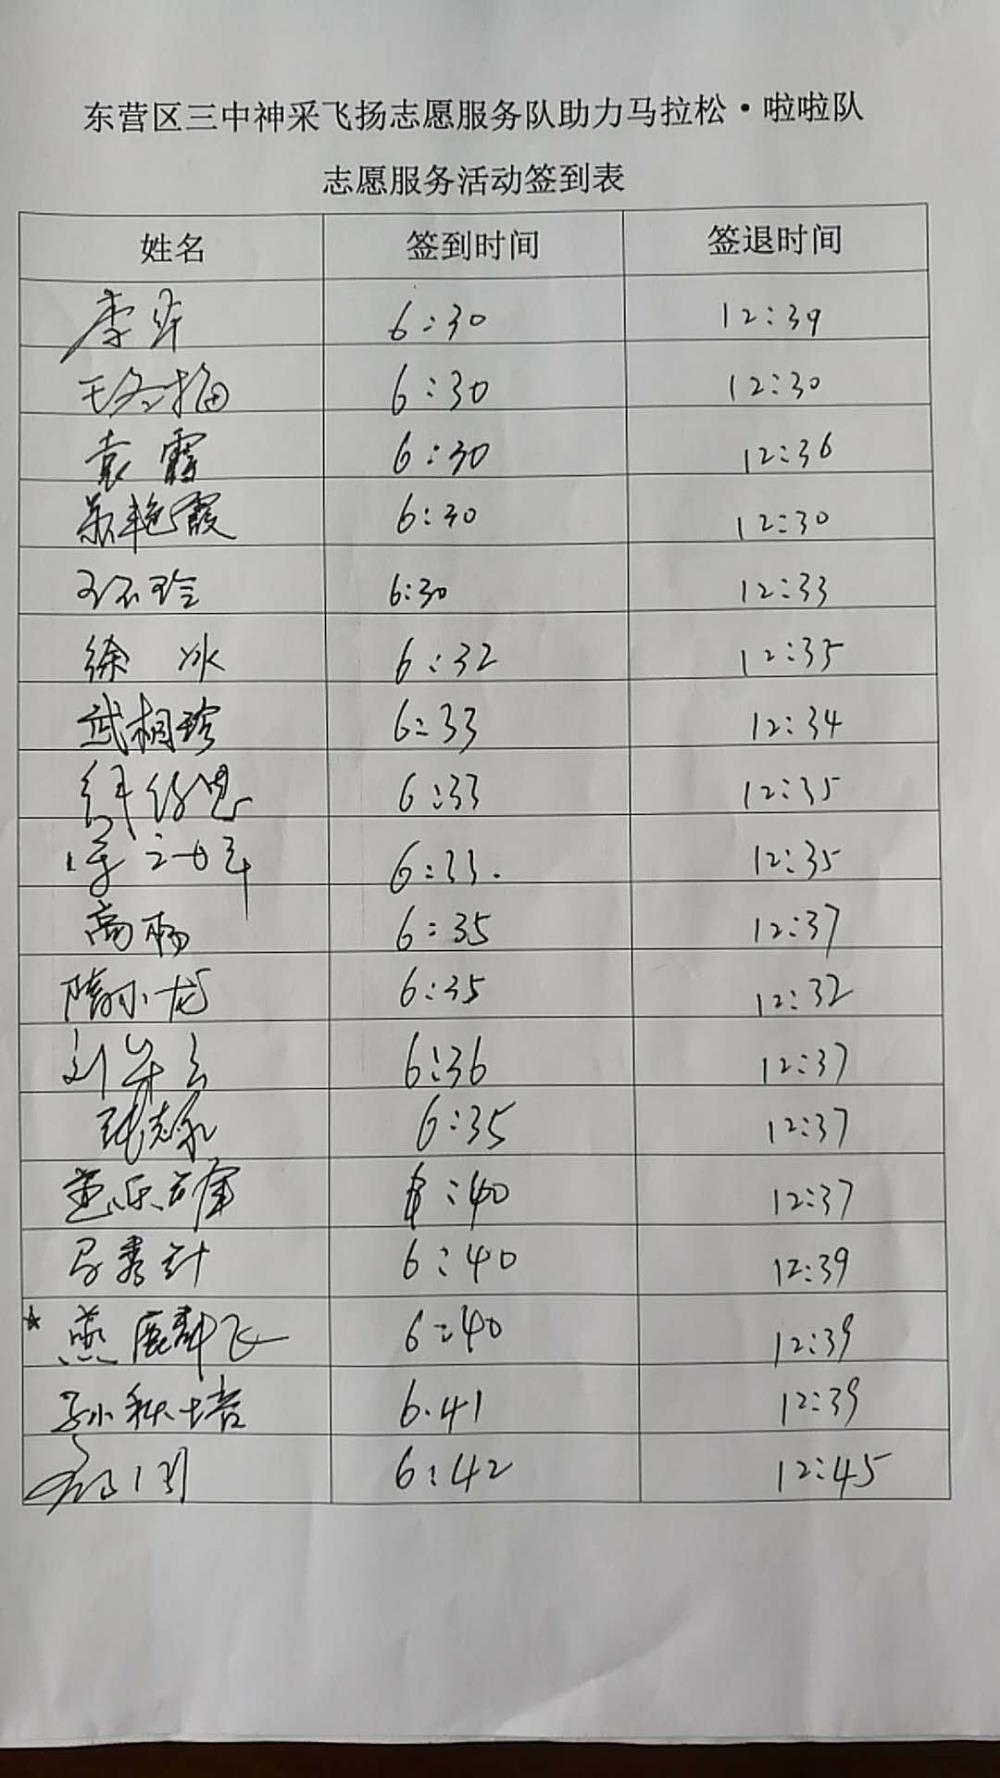 东营区三中神采飞扬志愿服务队助力马拉松·啦啦队
志愿服务活动签到表
姓名 签到时间 签退时间
李 6:30 12:39
6:30 12:30
袁霞 6:30 12:36
苏艳霞 6:30 12:30
玲 6:30 12:33
徐冰 6:32 12:35
武相珍 6:33 12:34
6:33 12:35
6:33. 12:35
高杨 6:35 12:37
隋小龙 6:35 12:32
刘 6:36 12:37
张志永 6:35 12:37
:40 12:37
马秀 6:40 12:39
燕 飞 6:40 12:39
孙秋培 6.41 12:39
6:42 12:45